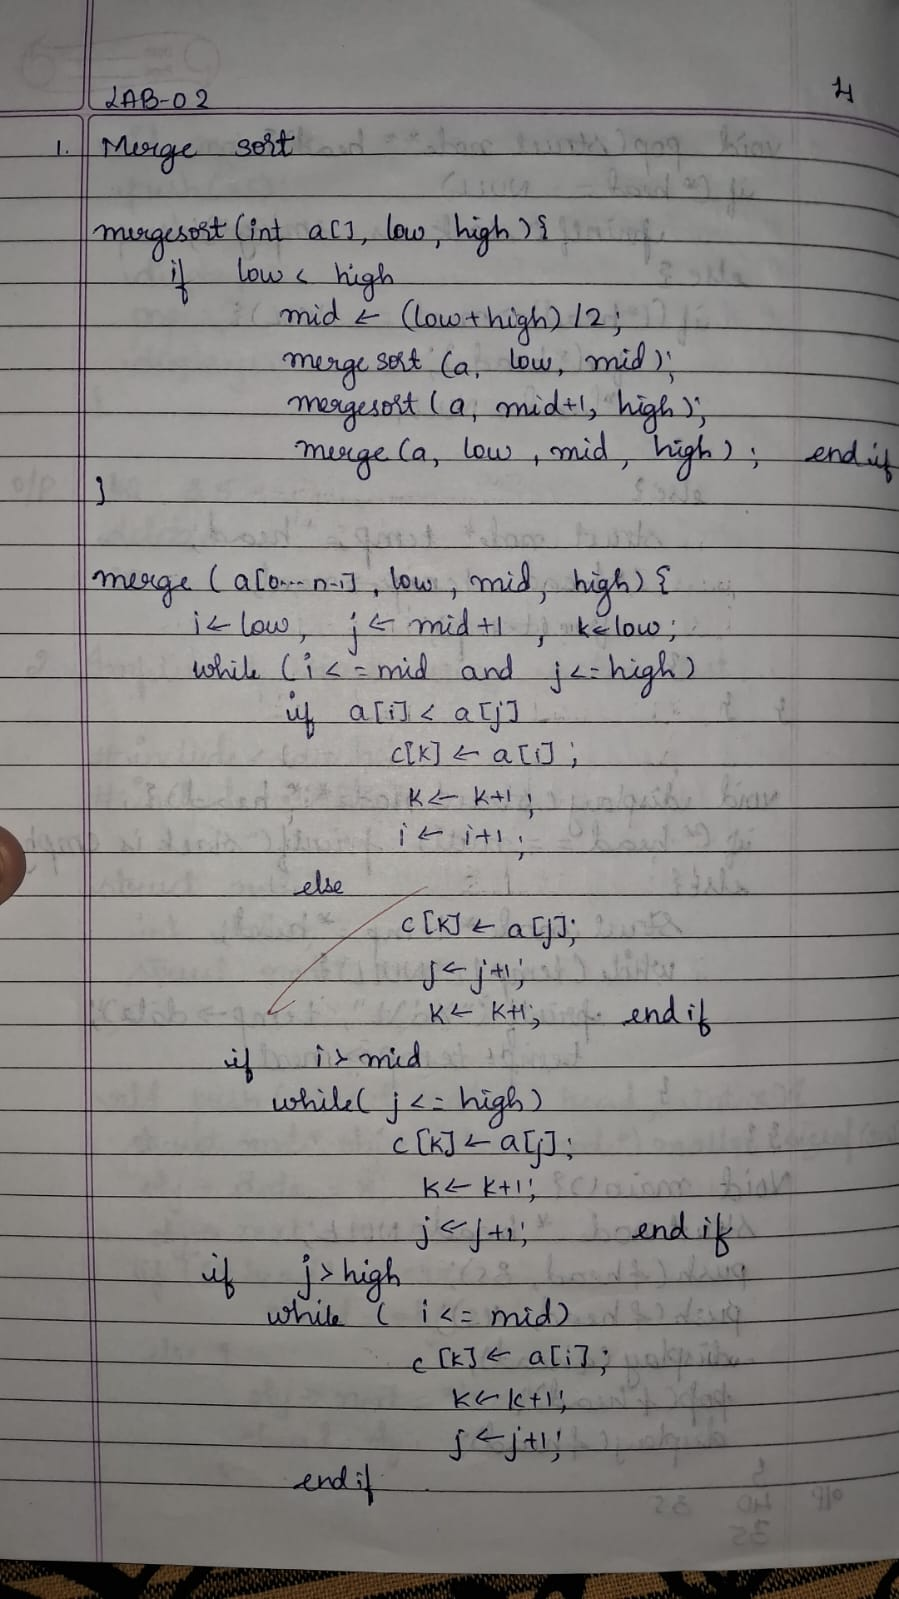 LAB-02
4
1. Merge sort
mergesort (int a[], low, high) {
if low < high
mid ← (low+high) /2;
merge sort (a, low, mid);
mergesort (a, mid+1, high);
merge (a, low, mid, high); end if
}
merge (a[0...n-1], low, mid, high) {
i ← low, j ← mid+1, k ← low;
while (i <= mid and j <= high)
if a[i] < a[j]
c[k] ← a[i];
k ← k+1;
i ← i+1;
else
c[k] ← a[j];
j ← j+1;
k ← k+1; end if
if i > mid
while( j <= high)
c[k] ← a[j];
k ← k+1;
j ← j+1; end if
if j > high
while ( i <= mid)
c[k] ← a[i];
k ← k+1;
j ← j+1;
end if